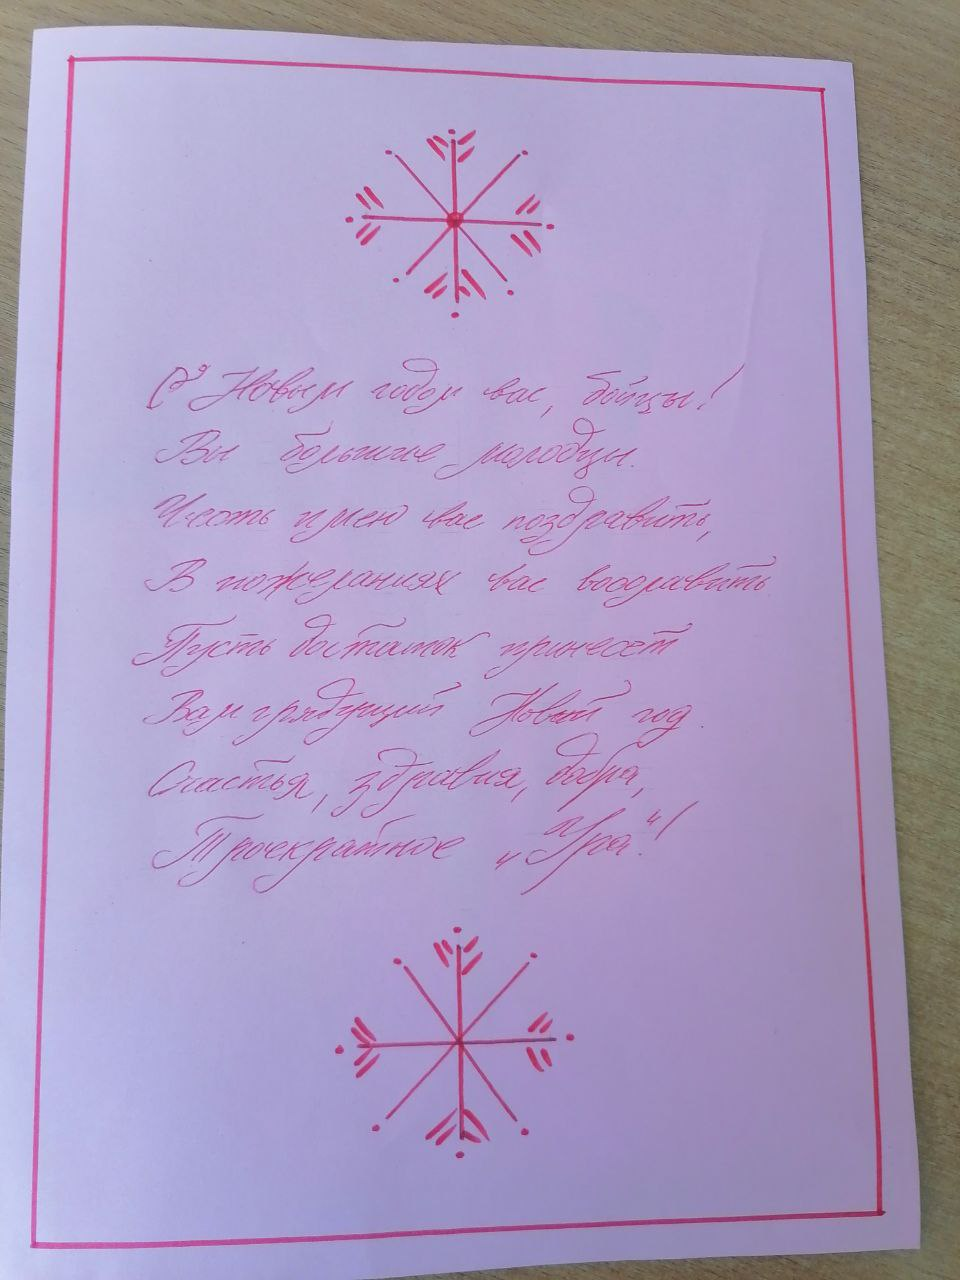 С Новым годом вас, бойцы!
Вы большие молодцы.
Честь имею вас поздравить,
В пожеланиях вас
Пусть достаток принесёт
Вам грядущий Новый год.
Счастья, здравия, добра,
Троекратное „Ура“!